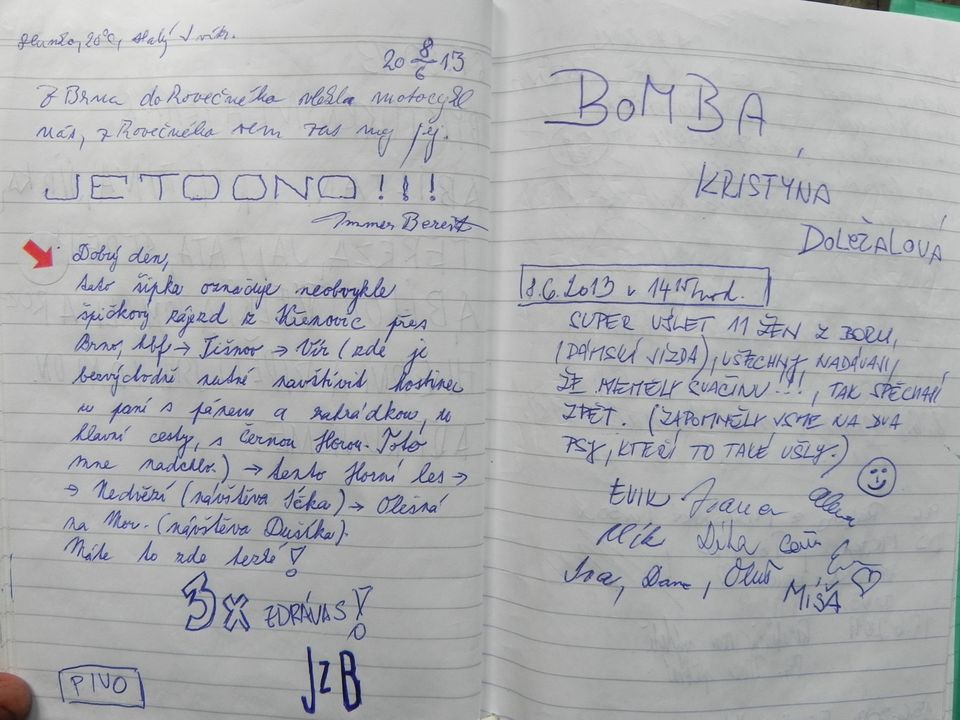 Slunko, 20°C, slabý vítr.
20 8/6 13
Z Brna do Rovečného vlekla motocykl
nás, z Rovečného sem zas my jej.
JE TO ONO!!!
Dobrý den,
tato šipka označuje neobvykle
špičkový zájezd z Křenovic přes
Brno, hbf → Tišnov → Vír (zde je
bezvýchodně nutné navštívit hostinec
u paní s pánem a zahrádkou, u
hlavní cesty, s Černou Horou. Toto
mne nadchlo.) → tento Horní les →
→ Nedvězí (návštěva Íčka) → Olešná
na Mor. (návštěva Dušíka).
Máte to zde hezké!
3x ZDRÁVAS!
JzB
PIVO
BOMBA
KRISTÝNA
DOLEŽALOVÁ
8.6.2013 v 14 15 hod.
SUPER VÝLET 11 ŽEN Z BORU,
(DÁMSKÁ JÍZDA), VŠECHNY NADÁVALI,
ŽE NEMĚLY SVAČINU!!!, TAK SPĚCHAJÍ
ZPĚT. (ZAPOMNĚLY JSME NA DVA
PSY, KTEŘÍ TO TAKÉ UŠLY.)
EVIK Ivana Alena
Dáša
Iva, Dana,
MÍŠA